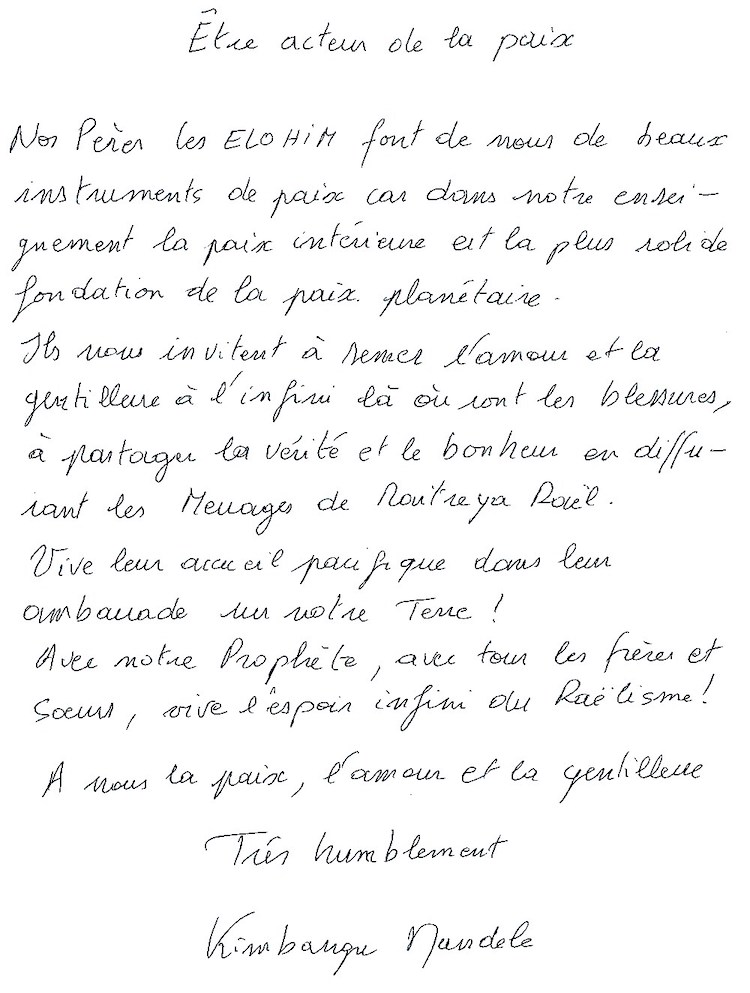 Être acteur de la paix
Nos Pères les ELOHIM font de nous de beaux
instruments de paix car dans notre ensei-
gnement la paix intérieure est la plus solide
fondation de la paix planétaire.
Ils nous invitent à semer l'amour et la
gentillesse à l'infini là où sont les blessures,
à partager la vérité et le bonheur en diffu-
sant les Messages de Maitreya Raël.
Vive leur accueil pacifique dans leur
ambassade sur notre Terre !
Avec notre Prophète, avec tous les frères et
Soeurs, vive l'espoir infini du Raëlisme !
A nous la paix, l'amour et la gentillesse
Très humblement
Kimbangu Mandele